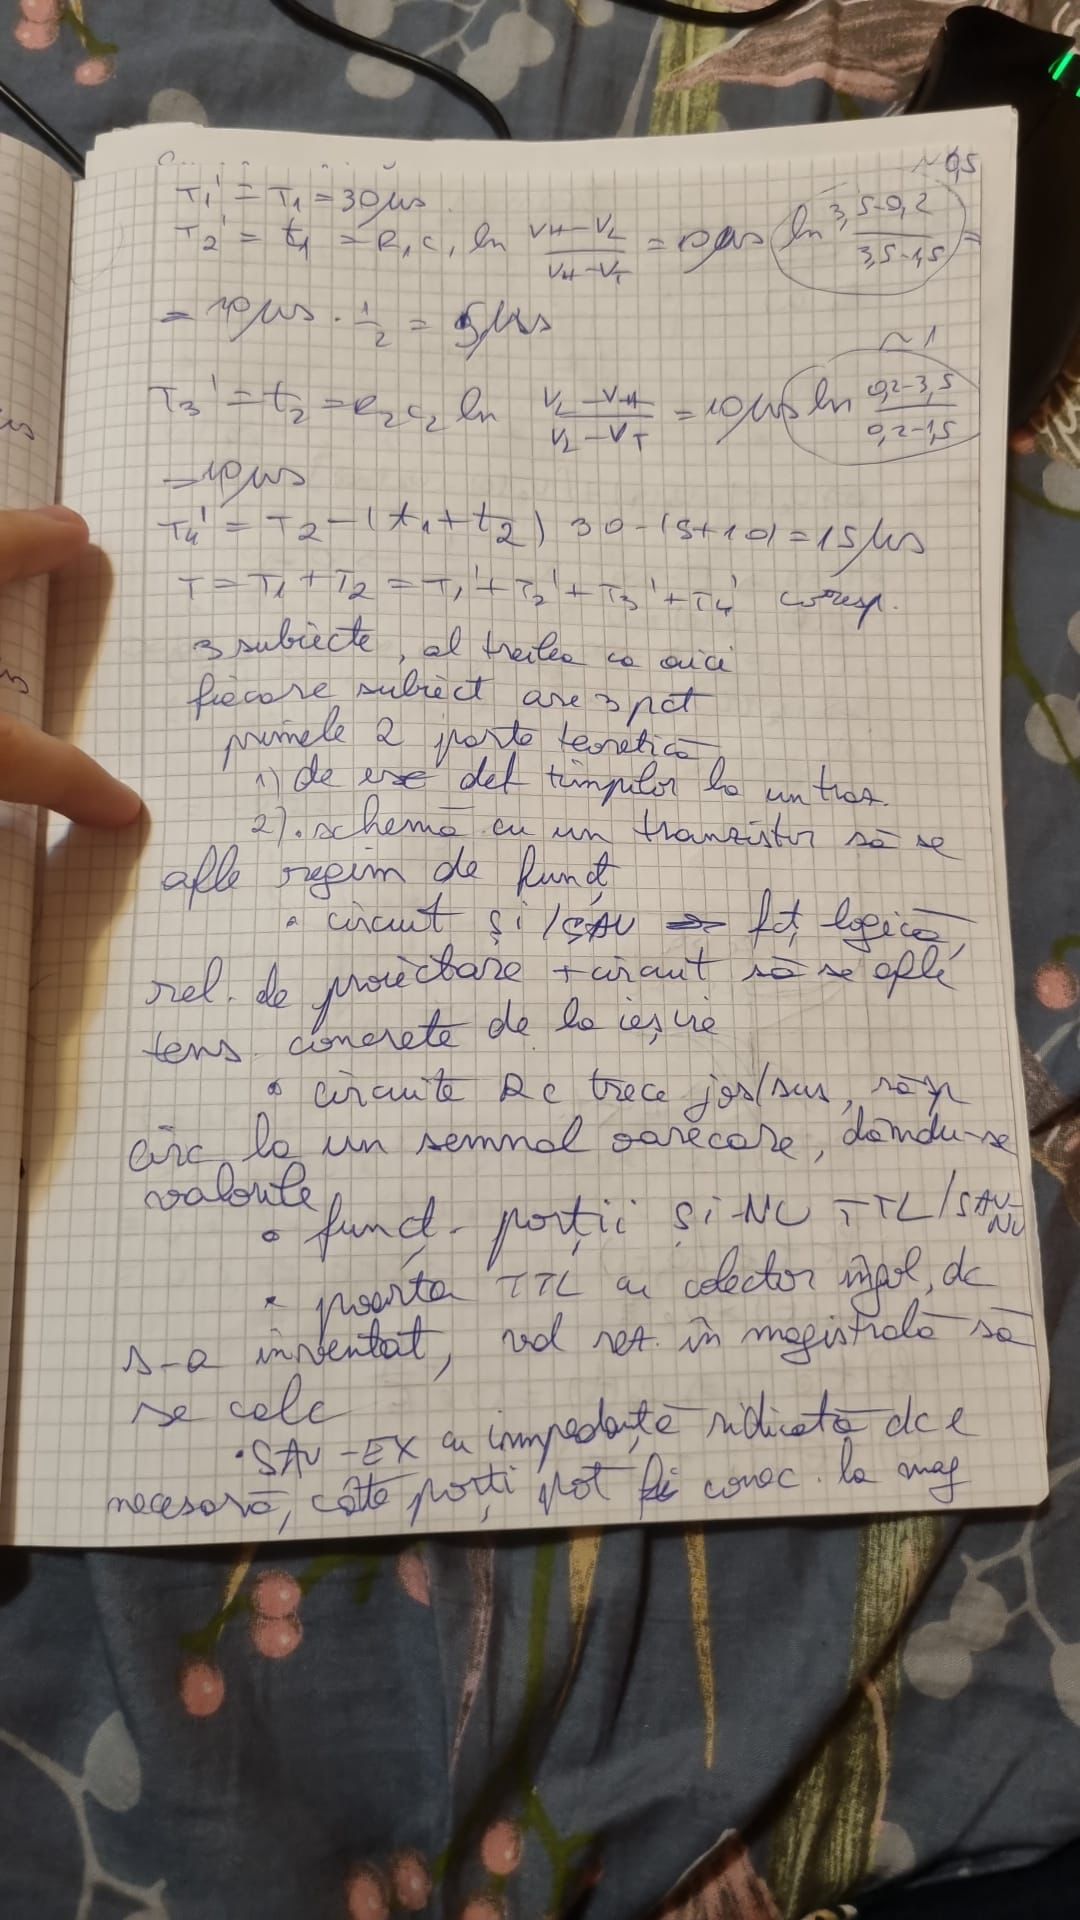 ~0,5
T1' = T1 = 30μs
T2' = t1 = R1C1 ln (VH-VL)/(VH-VT) = 10μs ln (3,5-0,2)/(3,5-1,5) =
= 10μs · 1/2 = 5μs
~1
T3' = t2 = R2C2 ln (VL-VH)/(VL-VT) = 10μs ln (0,2-3,5)/(0,2-1,5)
= 10μs
T4' = T2 - (t1+t2) 30-(5+10) = 15μs
T = T1 + T2 = T1' + T2' + T3' + T4' coresp.
3 subiecte, al treilea ca aici
fiecare subiect are 3 pct
primele 2 parte teoretică
1) de ex def timpilor la un traz.
2). schemă cu un tranzistor să se
afle regim de funcț
• circuit ȘI/SAU => fct, logică,
rel. de proiectare + circuit să se afle
tens. concrete de la ieșire
• circuite RC trece jos/sus, răsp
circ la un semnal oarecare, dându-se
valorile
• funcț. porții ȘI-NU TTL/SAU-NU
• poarta TTL cu colector în gol, dc
s-a inventat, val rez. în magistrală să
se calc
• SAU-EX cu impedanță ridicată dc e
necesară, câte porți pot fi conec. la mag